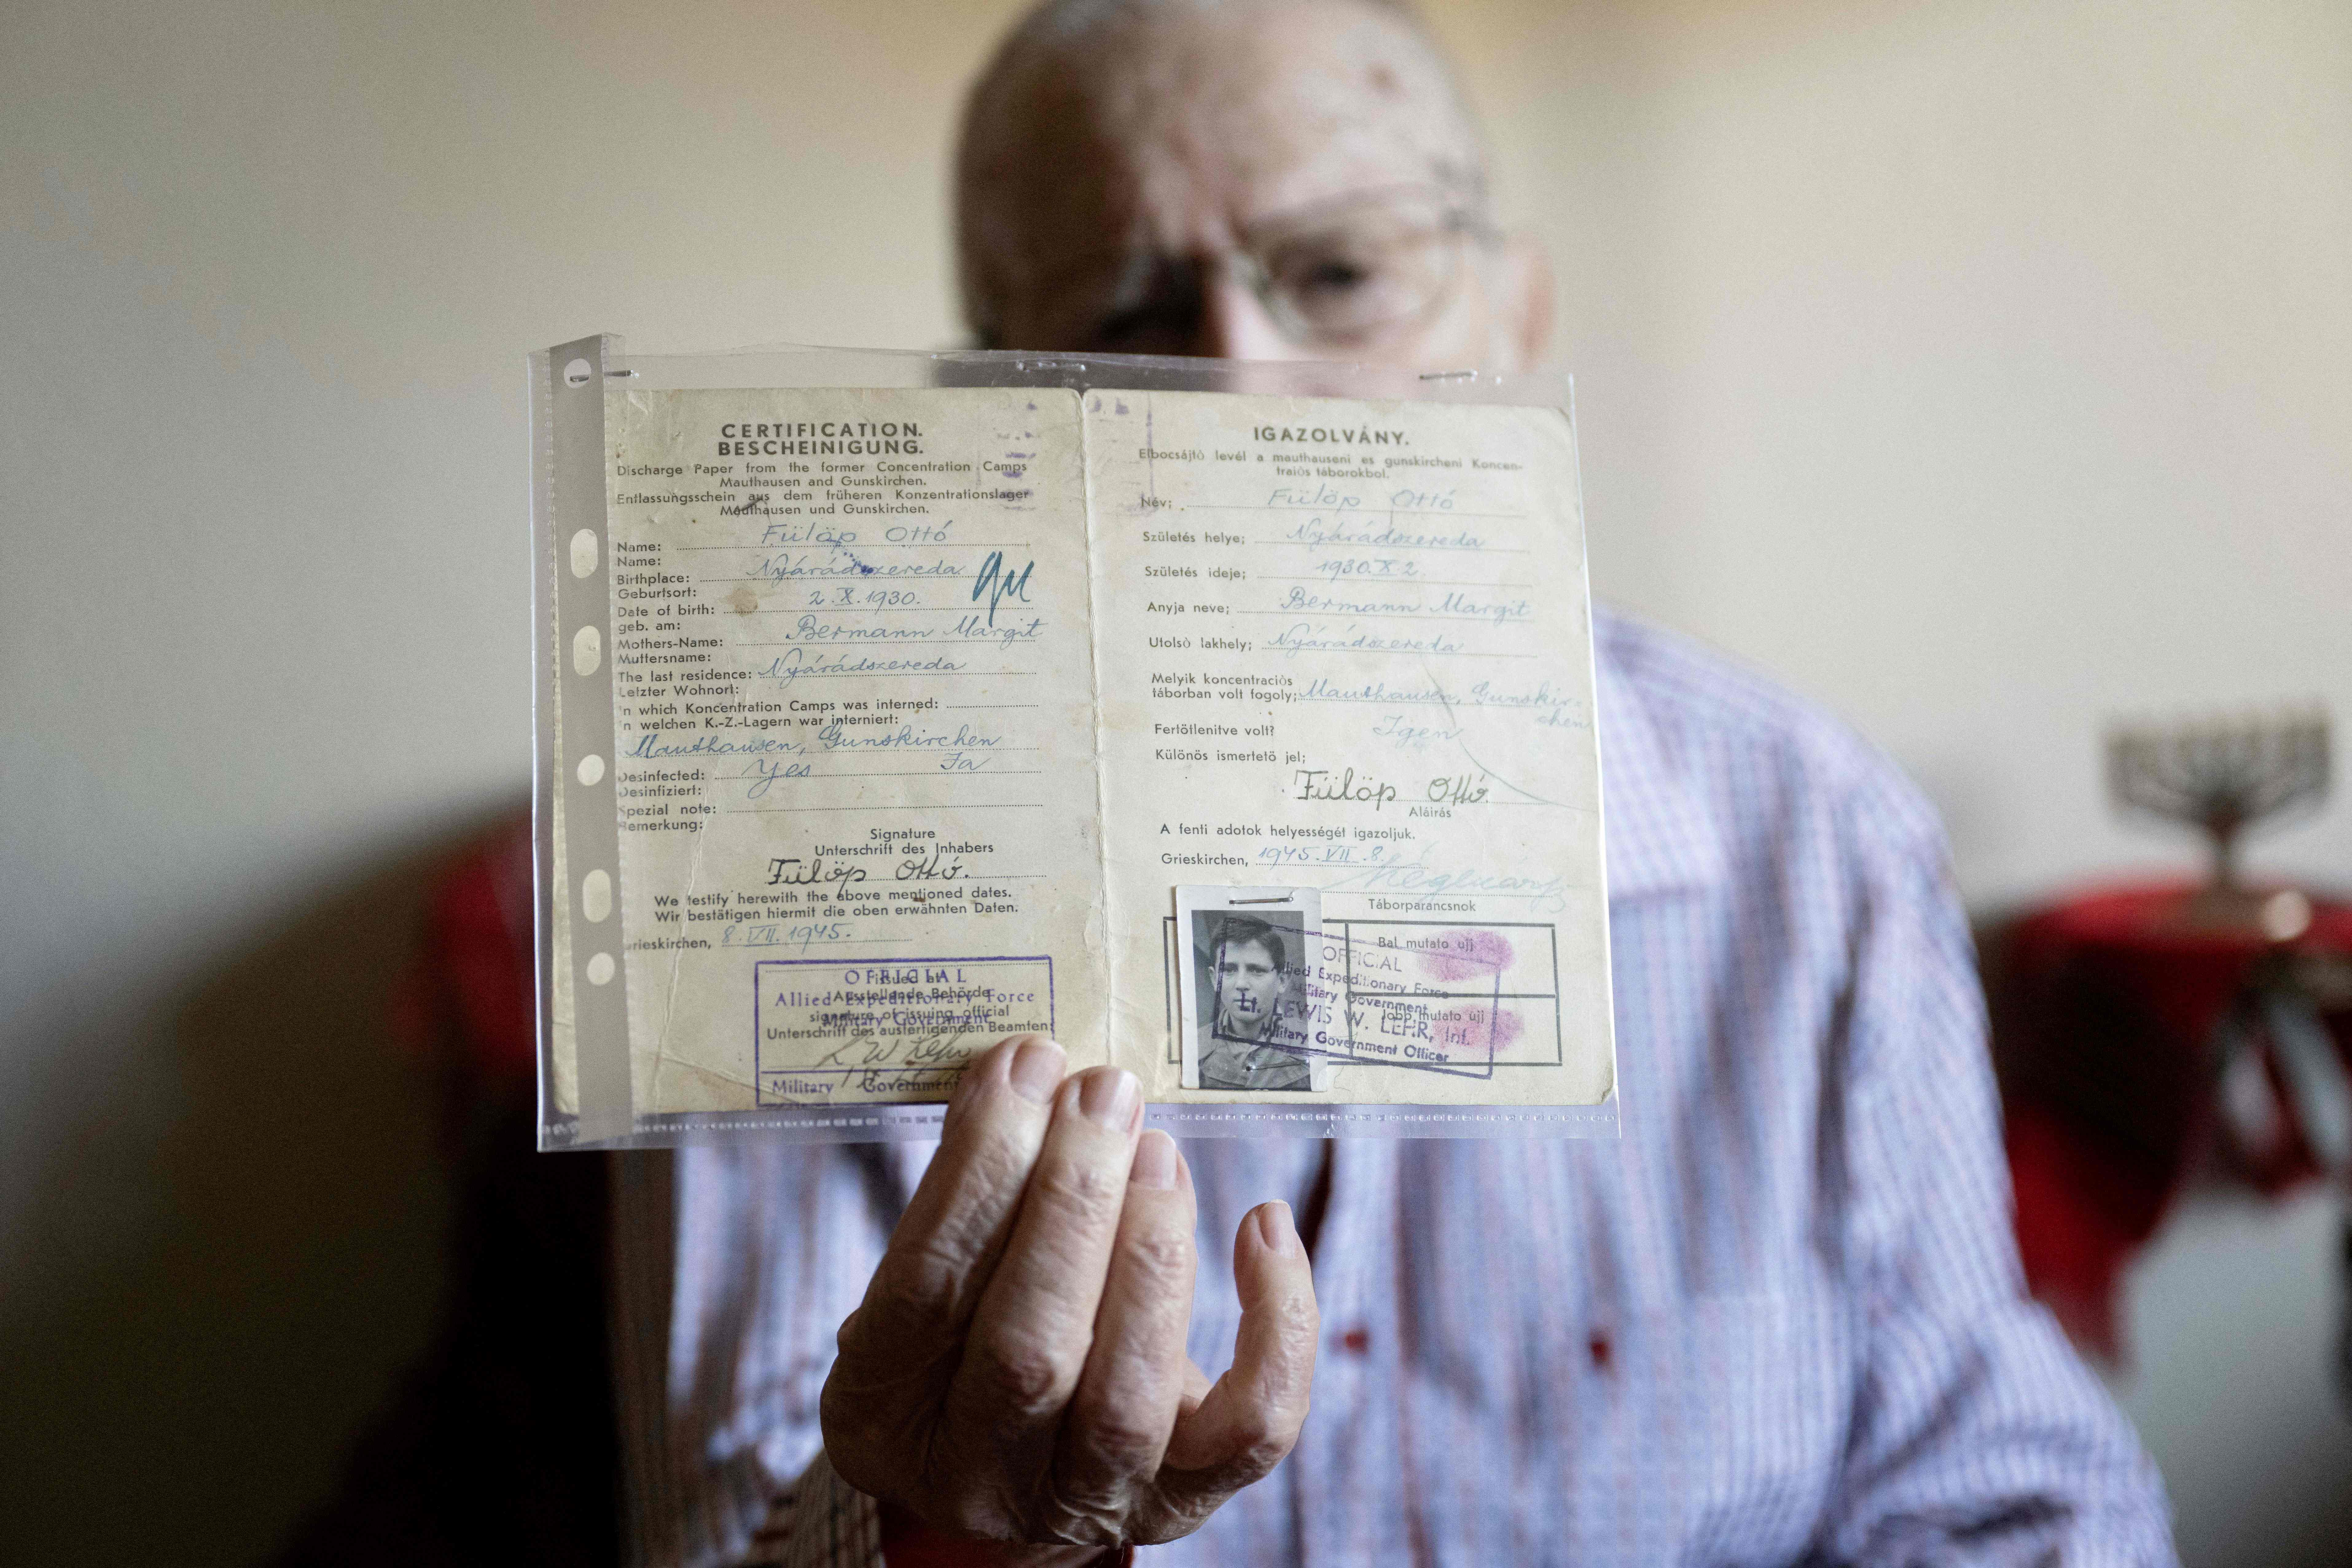 CERTIFICATION.
BESCHEINIGUNG.
Discharge Paper from the former Concentration Camps
Mauthausen and Gunskirchen.
Entlassungsschein aus dem früheren Konzentrationslager
Mauthausen und Gunskirchen.
Name: Fülöp Ottó
Name:
Birthplace: Nyárádszereda
Geburtsort:
Date of birth: 2.X.1930.
geb. am:
Mothers-Name: Bermann Margit
Muttersname:
The last residence: Nyárádszereda
Letzter Wohnort:
'n which Koncentration Camps was interned:
'n welchen K.-Z.-Lagern war interniert:
Mauthausen, Gunskirchen
Desinfected: Yes Ja
Desinfiziert:
Spezial note:
Bemerkung:
Signature
Unterschrift des Inhabers
Fülöp Ottó.
We testify herewith the above mentioned dates.
Wir bestätigen hiermit die oben erwähnten Daten.
Grieskirchen, 8.VII.1945.
OFFICIAL
Issued at
Allied Expeditionary Force
Ausstellende Behörde
signature of issuing official
Military Government
Unterschrift des ausfertigenden Beamten:
L W Lehr
Military Government
IGAZOLVÁNY.
Elbocsájtó levél a mauthauseni es gunskircheni Koncen-
traiós táborokbol.
Név; Fülöp Ottó
Születés helye; Nyárádszereda
Születés ideje; 1930.X 2.
Anyja neve; Bermann Margit
Utolsò lakhely; Nyárádszereda
Melyik koncentraciòs
táborban volt fogoly; Mauthausen, Gunskir-
chen
Fertötlenitve volt? Igen
Különös ismertető jel;
Fülöp Ottó.
Aláirás
A fenti adotok helyességét igazoljuk.
Grieskirchen, 1945.VII.8.
Táborparancsnok
Bal mutato ujj
OFFICIAL
Allied Expeditionary Force
Military Government
Jobb mutato ujj
Lt. LEWIS W. LEHR, Inf.
Military Government Officer